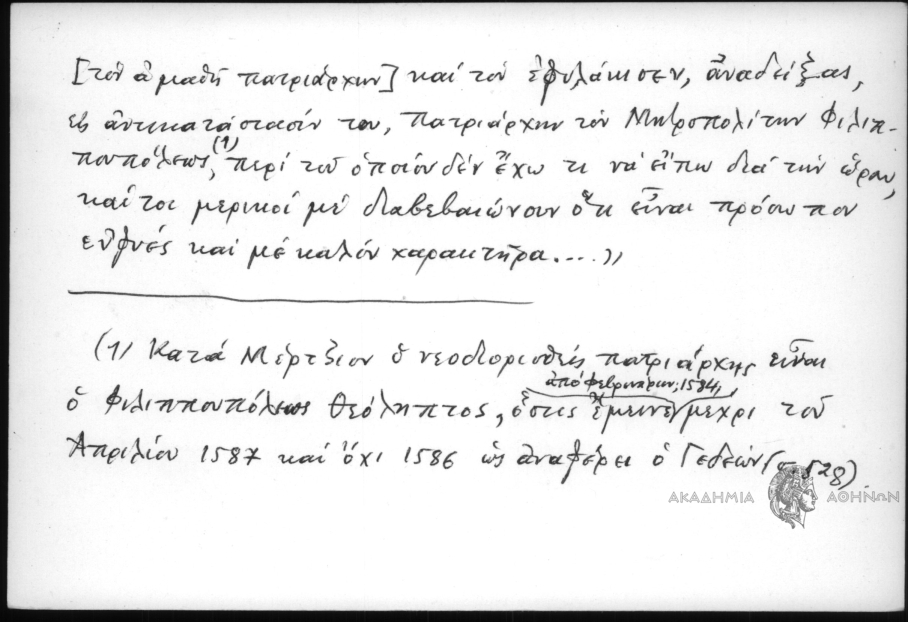 [τὸν ἀμαθῆ πατριάρχην] καί τόν ἐφυλάκισεν, ἀναδείξας,
εἰς ἀντικατάστασίν του, Πατριάρχην τόν Μητροπολίτην Φιλιπ-
πουπόλεως,(1) περί τοῦ ὁποίου δέν ἔχω τι νά εἴπω διά τήν ὥραν,
καίτοι μερικοί μέ διαβεβαιώνουν ὅτι εἶναι πρόσωπον
εὐφυές καί μέ καλόν χαρακτῆρα....»
(1) Κατά Μέρτζιον ὁ νεοδιορισθείς πατριάρχης εἶναι
ἀπό Φεβρουαρίου, 1584,
ὁ Φιλιππουπόλεως Θεόληπτος, ὅστις ἔμεινε μέχρι τοῦ
Ἀπριλίου 1587 καί ὄχι 1586 ὡς ἀναφέρει ὁ Γεδεών (σ. 528).
ΑΚΑΔΗΜΙΑ ΑΘΗΝΩΝ